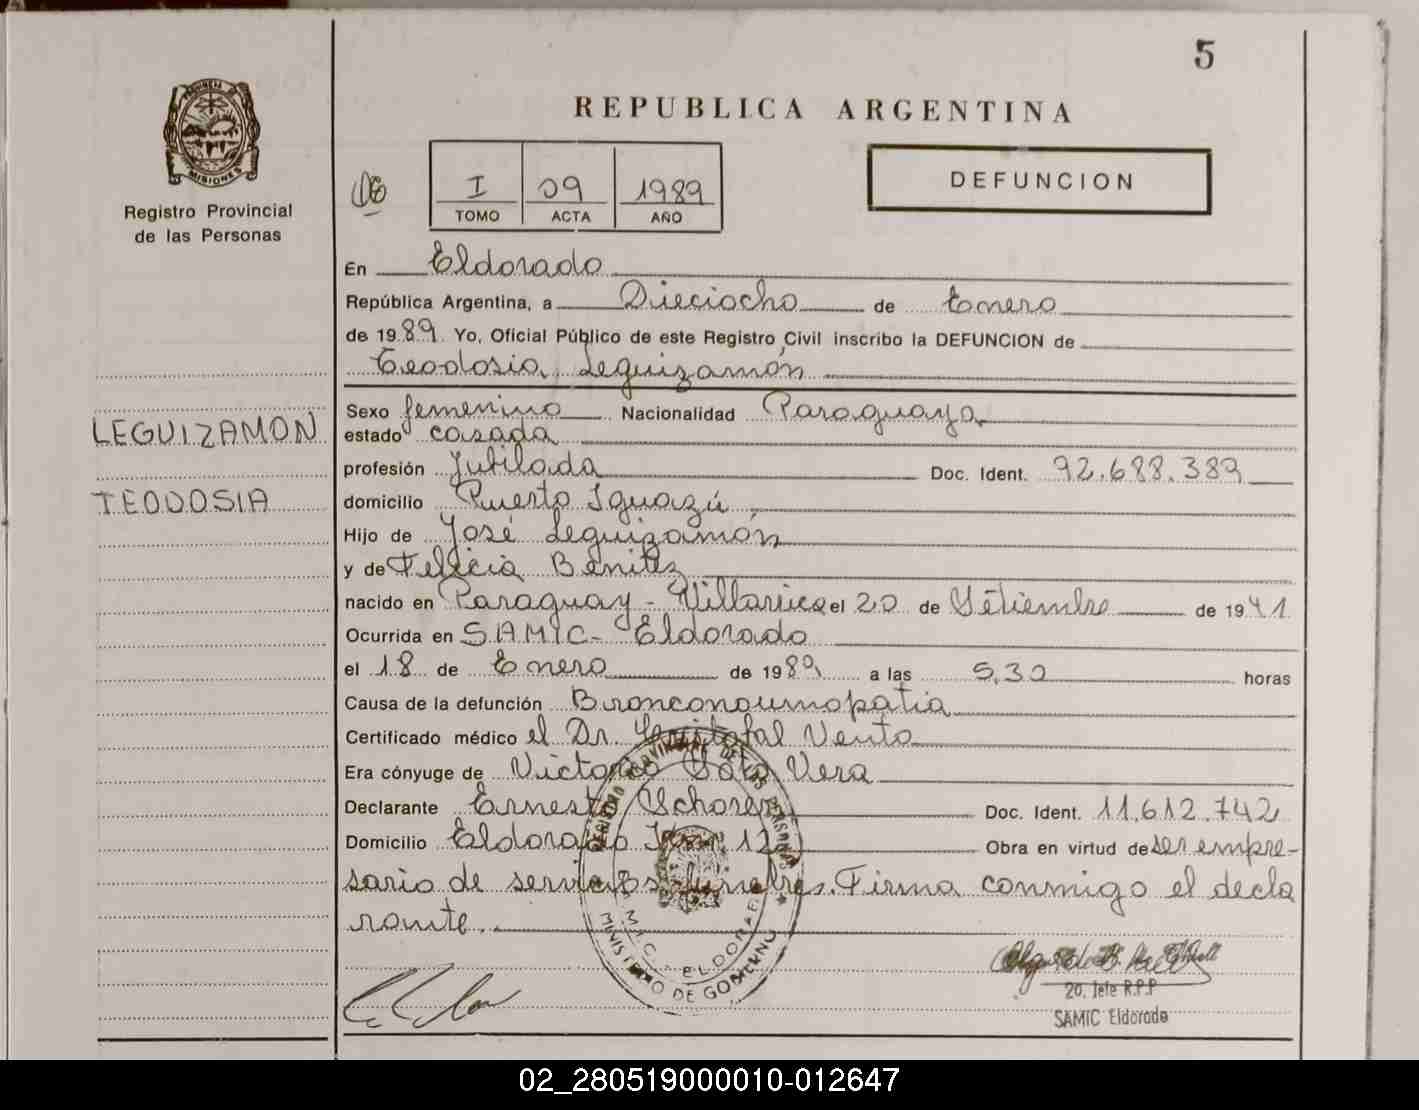 5
REPUBLICA ARGENTINA
PROVINCIA DE
MISIONES
Registro Provincial
de las Personas
I 09 1989
TOMO ACTA AÑO
DEFUNCION
En Eldorado
República Argentina, a Dieciocho de Enero
de 1989. Yo, Oficial Público de este Registro Civil inscribo la DEFUNCION de
Teodosia Leguizamón
LEGUIZAMON
TEODOSIA
Sexo femenino Nacionalidad Paraguaya
estado casada
profesión Jubilada Doc. Ident. 92.688.389
domicilio Puerto Iguazú
Hijo de José Leguizamón
y de Felicia Benitez
nacido en Paraguay - Villarrica el 20 de Sétiembre de 1941
Ocurrida en SAMIC- Eldorado
el 18 de Enero de 1989 a las 5,30 horas
Causa de la defunción Bronconeumopatia
Certificado médico el Dr. Cristofal Vento
Era cónyuge de Victorio Sosa Vera
Declarante Ernesto Schorer Doc. Ident. 11.612.742
Domicilio Eldorado Km 12 Obra en virtud de ser empre-
sario de servicios funebres. Firma conmigo el decla
rante.
MINISTERIO DE GOBIERNO
ELDORADO
2o. Jefe R.P.P
SAMIC Eldorado
02_280519000010-012647